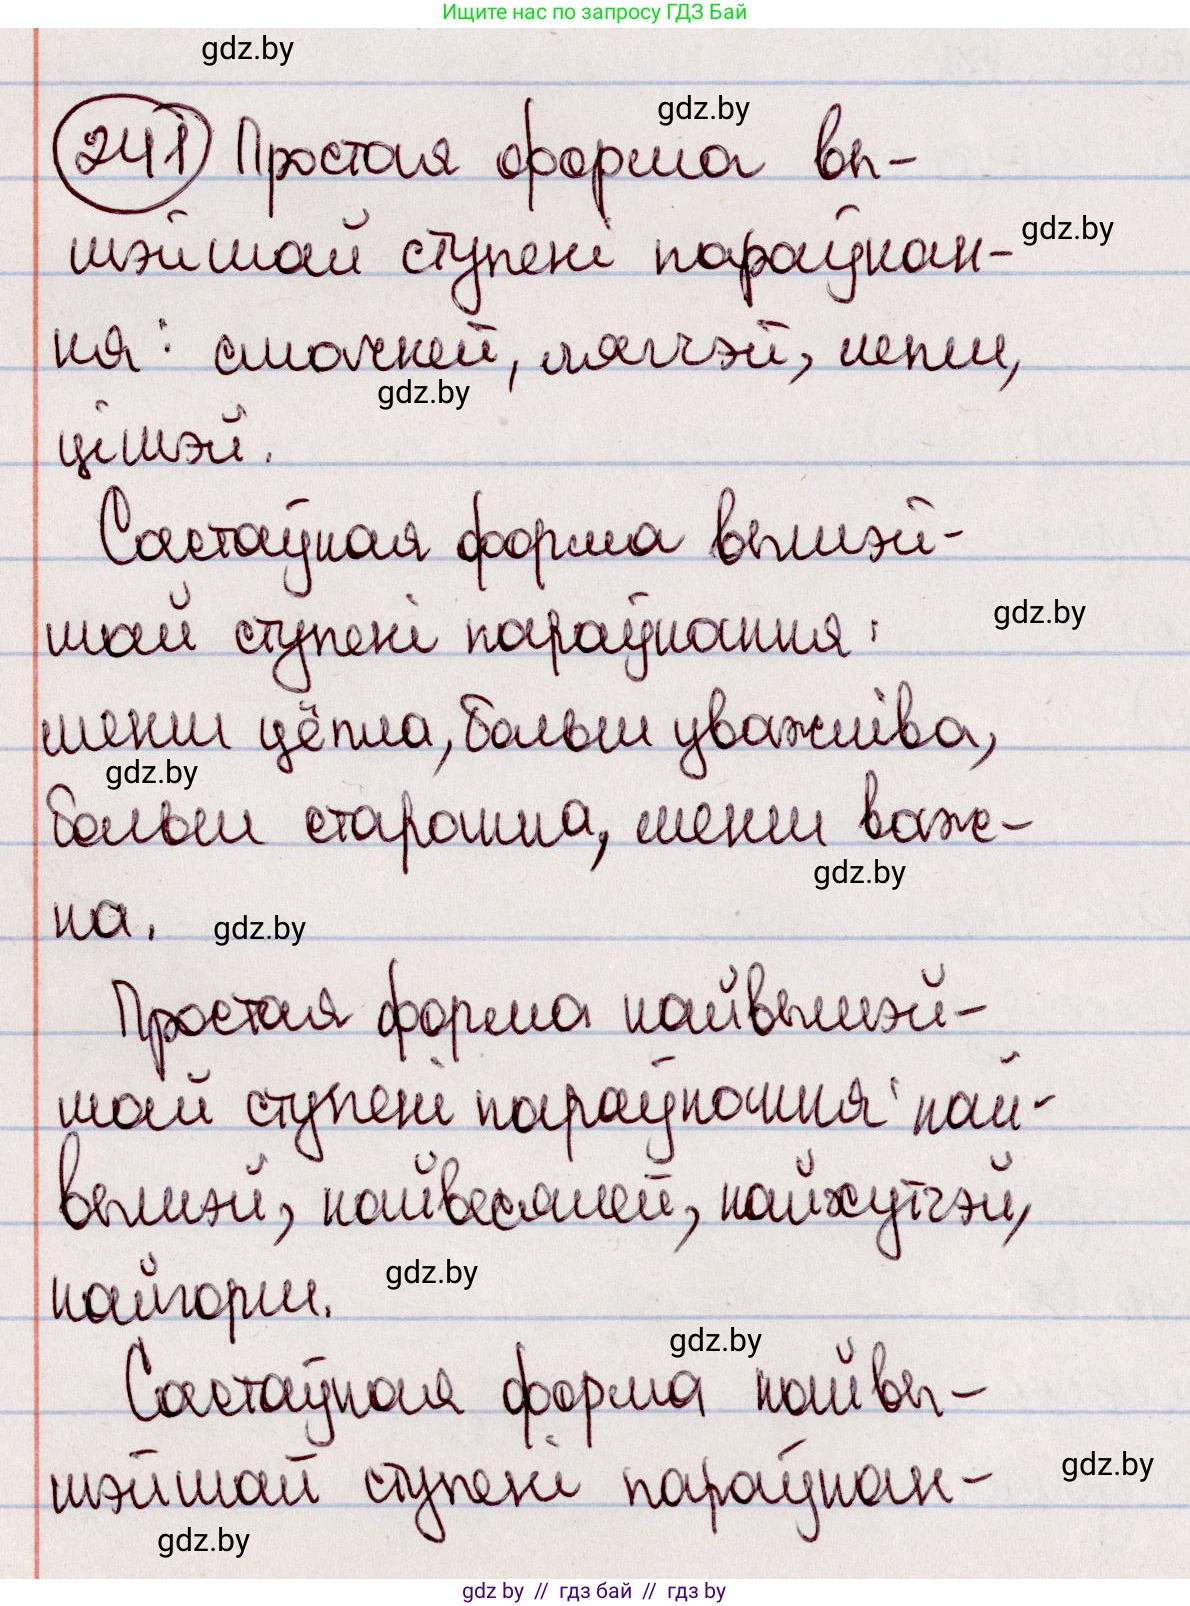 Ищите нас по запросу ГДЗ Бай
gdz.by
gdz.by
241 Простая форма вы-
gdz.by
шэйшай ступені параўнан-
ня: смачней, мягчэй, лепш,
gdz.by
цішэй.
Састаўная форма вышэй-
gdz.by
шай ступені параўнання:
менш цёпла, больш уважліва,
gdz.by
больш старанна, менш важ-
gdz.by
на.
gdz.by
Простая форма найвышэй-
шай ступені параўнання: най-
вышэй, найвесялей, найхутчэй,
gdz.by
найгорш.
gdz.by
Састаўная форма найвы-
gdz.by
шэйшай ступені параўнан-
gdz.by
gdz by // гдз бай // гдз by